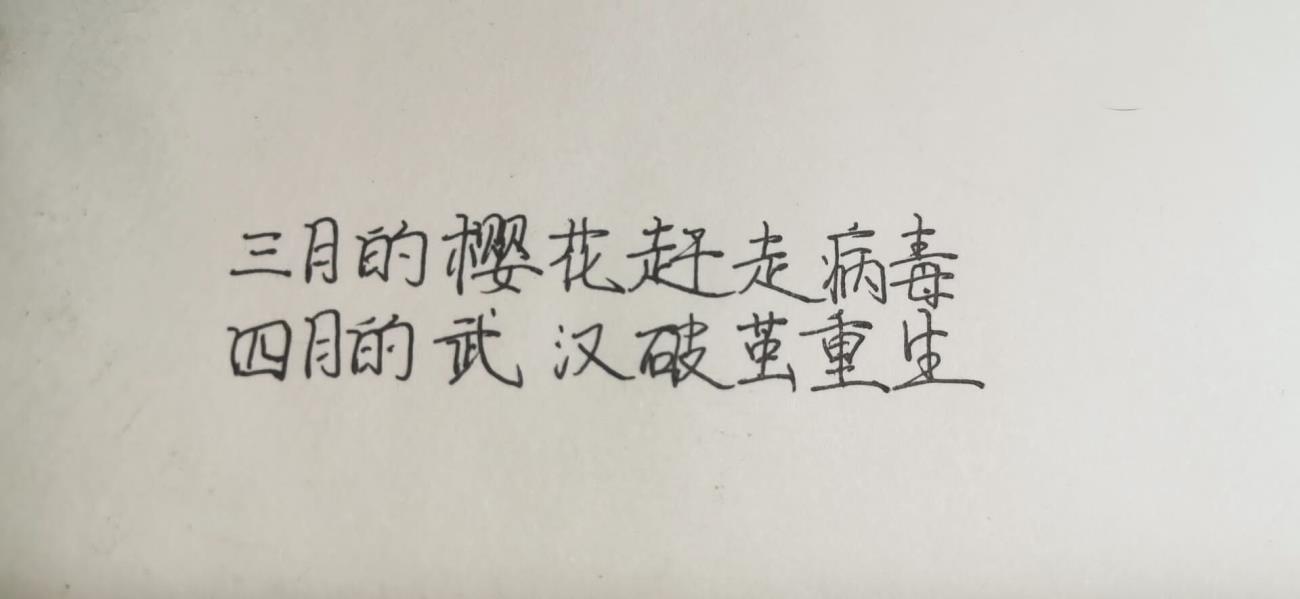 三月的樱花赶走病毒
四月的武汉破茧重生